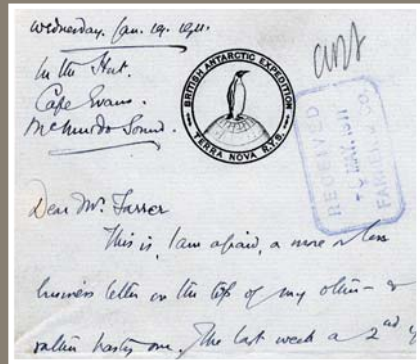 Wednesday. Jan. 19. 1911.
In the Hut.
Cape Evans.
McMurdo Sound.
BRITISH ANTARCTIC EXPEDITION
TERRA NOVA R.Y.S.
RECEIVED
MAY 1911
FARRER & CO.
Dear Mr. Farrer
This is, I am afraid, a more or less
business letter on the top of my other - &
rather hasty one. The last week a 2nd